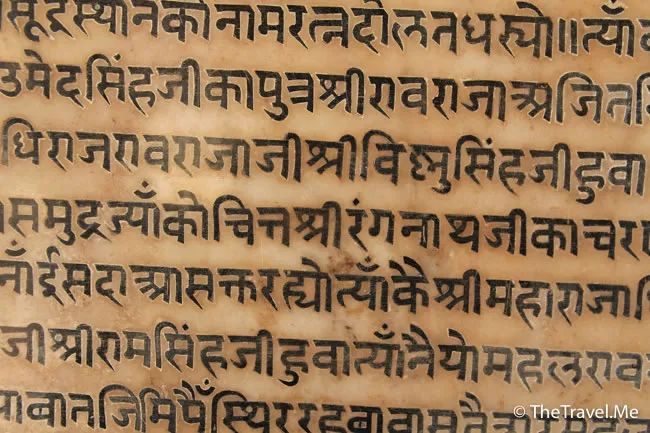 सूईस्थानकोनामरत्नदोलतधस्यो॥त्याँ
उमेदसिंहजीकापुत्रश्रीरावराजाअजित
धिराजरावराजाजीश्रीविष्णुसिंहजीहुवा
समुद्रज्याँकोचित्तश्रीरंगनाथजीकाचर
नाँईसदाआसक्तरह्योत्याँकैश्रीमहाराजा
जीश्रीरामसिंहजीहुवात्याँनैयोमहलराव
बातजिमिपैँस्थिररहवा
© TheTravel.Me